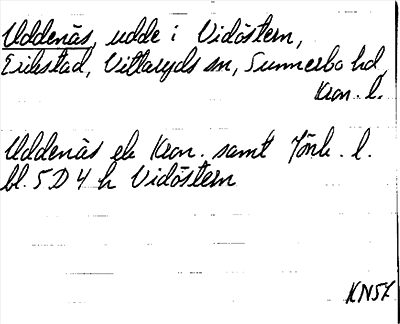 Uddenäs, udde i Vidöstern,
Erikstad, Vittaryds sn, Sunnerbo hd,
Kron. l.
Uddenäs ek Kron. samt Jönk. l.
bl. 5 D 4 h Vidöstern
KN57